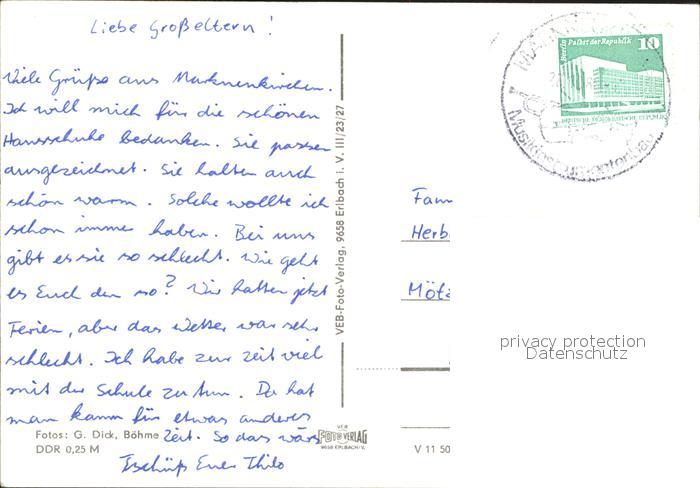 Liebe Großeltern!
Viele Grüße aus Markneukirchen.
Ich will mich für die schönen
Hausschuhe bedanken. Sie passen
ausgezeichnet. Sie halten auch
schön warm. Solche wollte ich
schon immer haben. Bei uns
gibt es sie so schlecht. Wie geht
es Euch denn so? Wir hatten jetzt
Ferien, aber das Wetter war sehr
schlecht. Ich habe zur Zeit viel
mit der Schule zu tun. Da hat
man kaum für etwas anderes
Zeit. So das wärs
Tschüß Euer Thilo
Fotos: G. Dick, Böhme
DDR 0,25 M
VEB-Foto-Verlag, 9658 Erlbach i. V. III/23/27
VEB
FOTO VERLAG
9658 ERLBACH/V.
V 11 50
Berlin Palast der Republik
10
DEUTSCHE DEMOKRATISCHE REPUBLIK
Musikinstrumentenbau
Fam
Herb
Mötz
privacy protection
Datenschutz